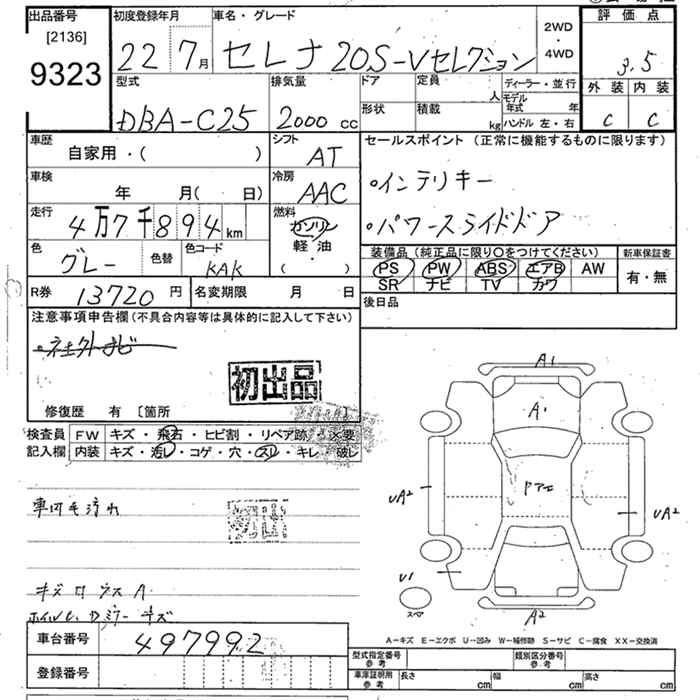 出品番号 初度登録年月 車名・グレード 評価点
[2136] 22 7月 セレナ 20S-Vセレクション 2WD・4WD 3.5
9323 外装 内装
型式 排気量 ドア 定員 人 ディーラー・並行 C C
DBA-C25 2000 cc 形状 積載 kg モデル年式 年 ハンドル 左・右
車歴 自家用・( ) シフト AT セールスポイント (正常に機能するものに限ります)
車検 年 月( 日) 冷房 AAC ・インテリキー
走行 4万7千894km 燃料 ガソリン・軽油・( ) ・パワースライドドア
色 グレー 色替 色コード KAK 装備品 (純正品に限り〇をつけてください) 新車保証書
PS PW ABS エアB AW 有・無
SR ナビ TV カワ
R券 13720円 名変期限 月 日 後日品
注意事項申告欄 (不具合内容等は具体的に記入して下さい)
・社外ナビ
初出品
修復歴 有 [箇所 ]
検査員 FW キズ・飛石・ヒビ割・リペア跡・ 要
記入欄 内装 キズ・汚レ・コゲ・穴・スリ・キレ 破レ
A1
A1
UA2 UA2
U1
スペア
A2
車内毛汚れ
初出
キズ A
キズ
A−キズ E−エクボ U−凹み W−補修跡 S−サビ C−腐食 XX−交換済
車台番号 497992 型式指定番号 参考 類別区分番号 参考
登録番号 車庫証明用 参考 長さ cm 幅 cm 高さ cm